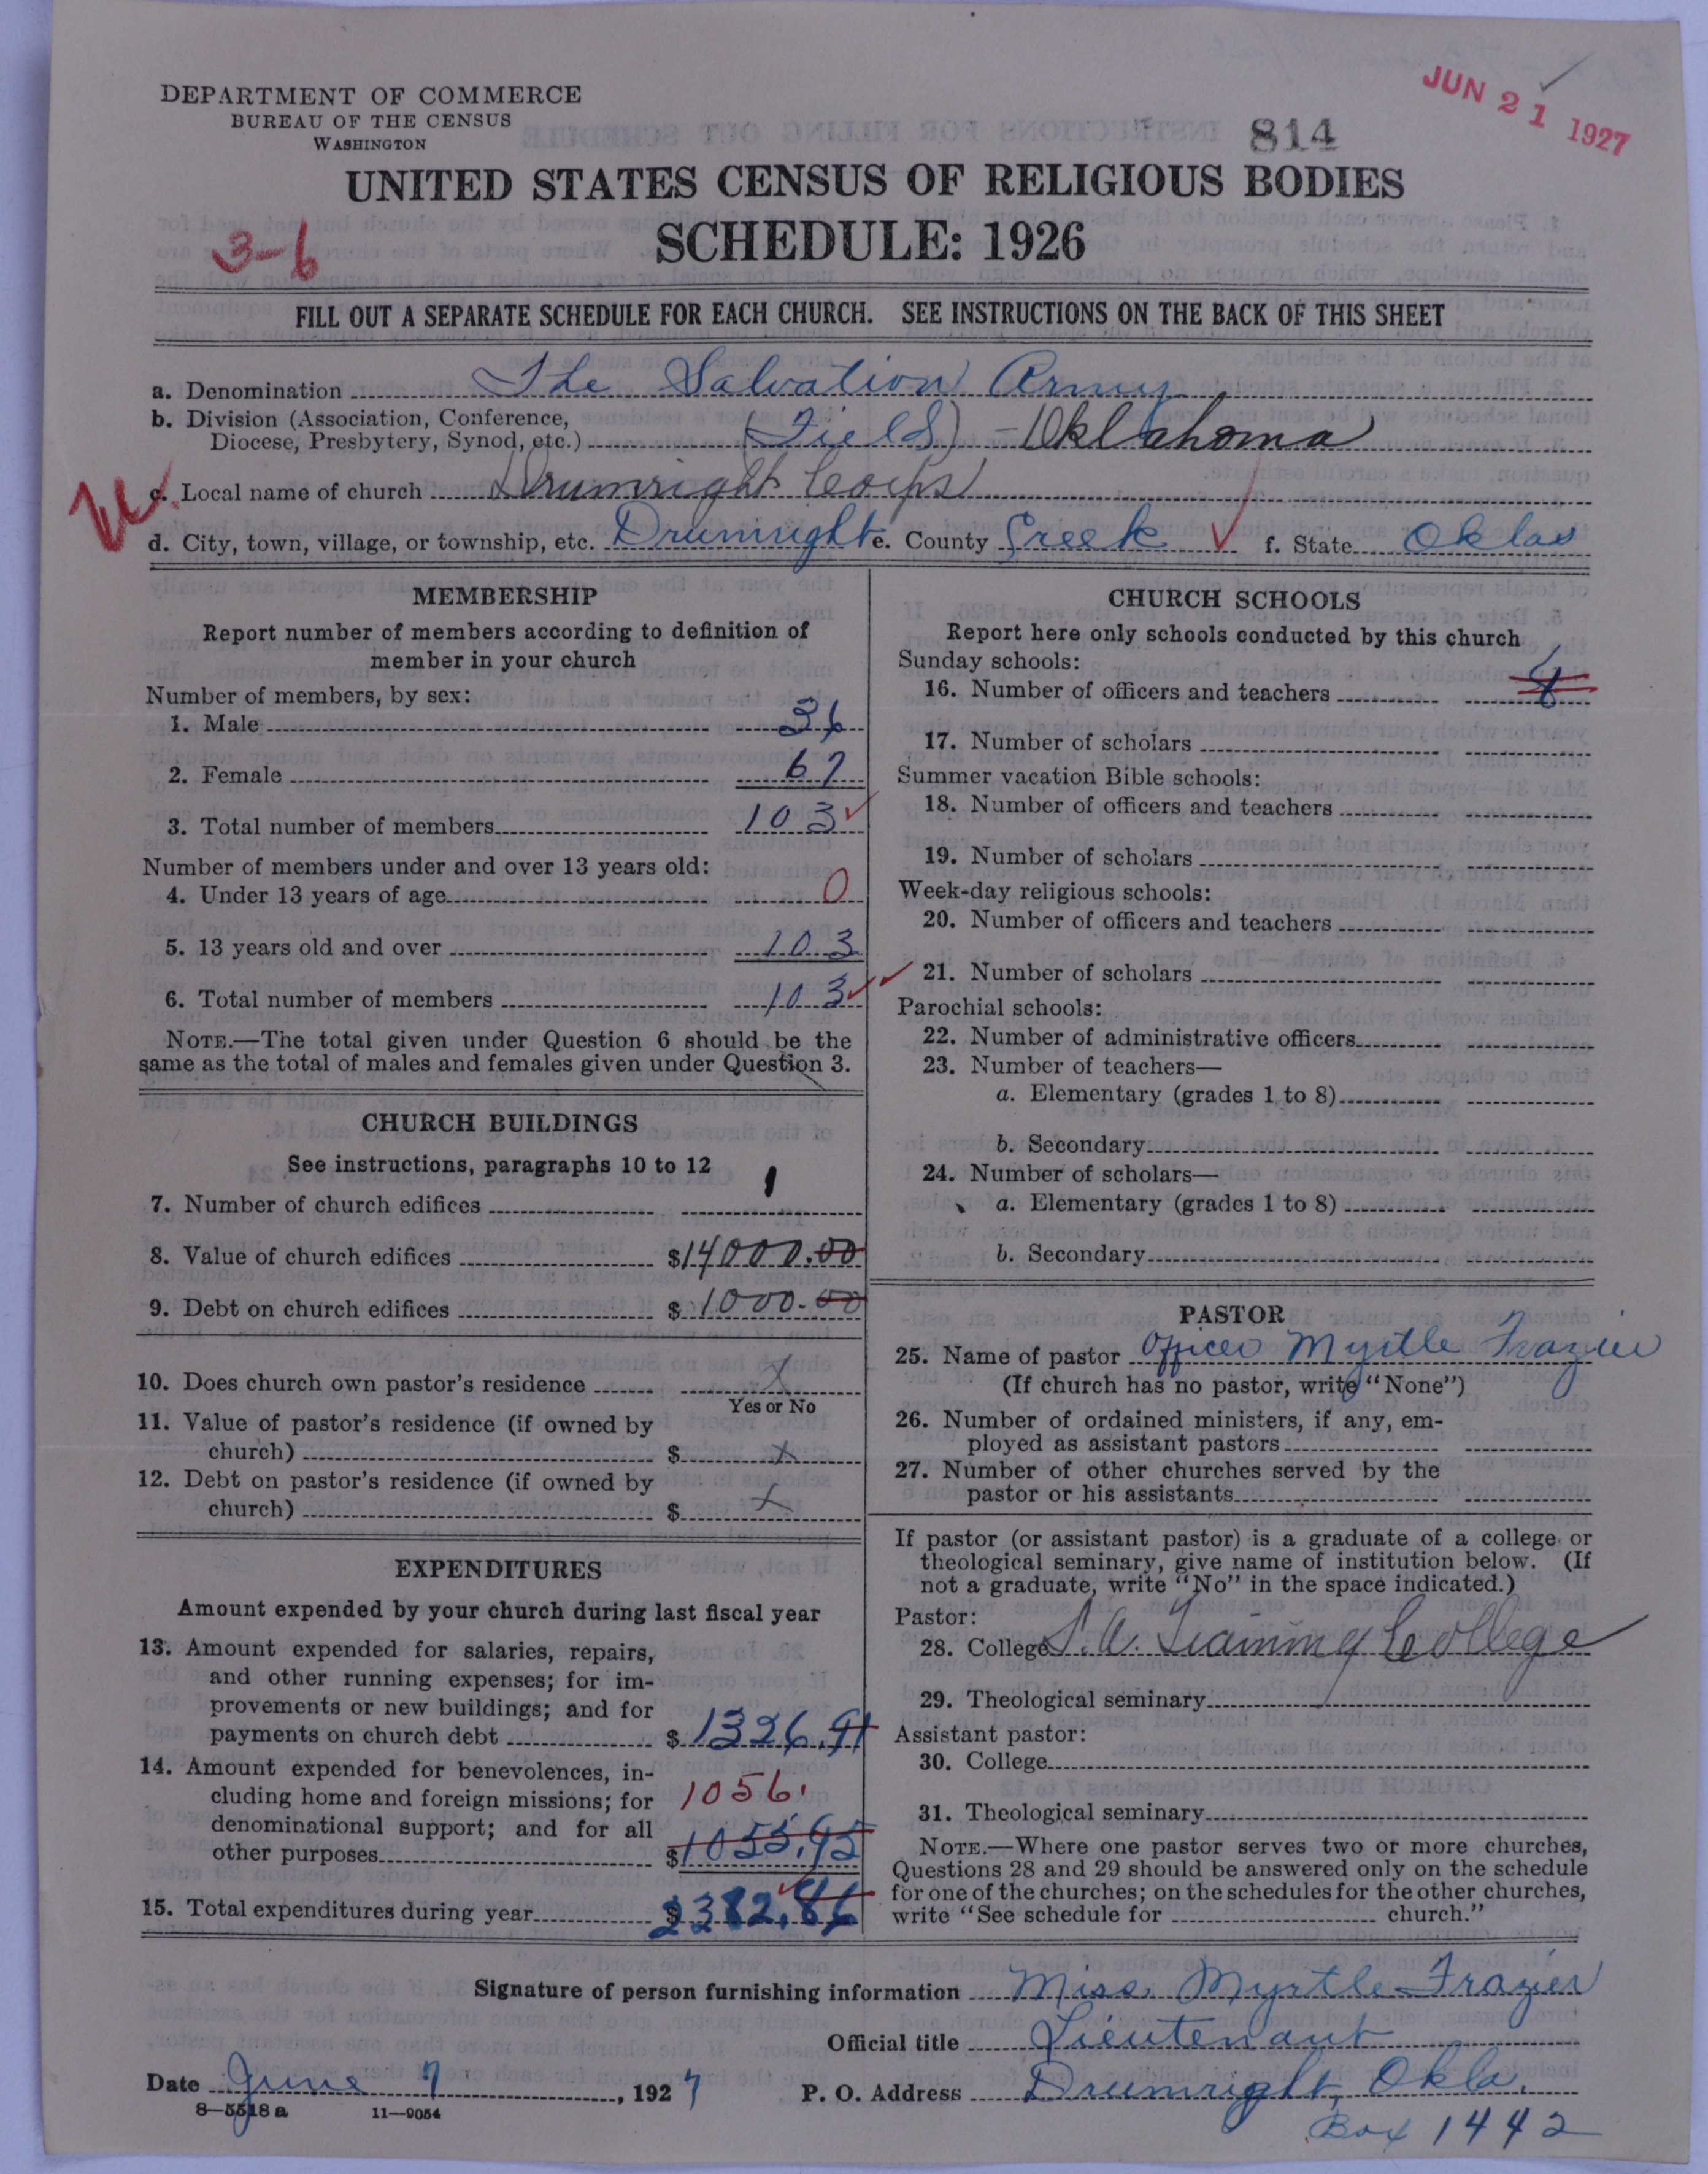 JUN 21 1927
DEPARTMENT OF COMMERCE
BUREAU OF THE CENSUS
WASHINGTON
814
UNITED STATES CENSUS OF RELIGIOUS BODIES
SCHEDULE: 1926
3-6
FILL OUT A SEPARATE SCHEDULE FOR EACH CHURCH. SEE INSTRUCTIONS ON THE BACK OF THIS SHEET
a. Denomination The Salvation Army
b. Division (Association, Conference,
Diocese, Presbytery, Synod, etc.) (Field) - Oklahoma
c. Local name of church Drumright Corps
d. City, town, village, or township, etc. Drumright e. County Creek f. State Oklas
MEMBERSHIP
Report number of members according to definition of
member in your church
Number of members, by sex:
1. Male 36
2. Female 67
3. Total number of members 103
Number of members under and over 13 years old:
4. Under 13 years of age 0
5. 13 years old and over 103
6. Total number of members 103
NOTE.—The total given under Question 6 should be the
same as the total of males and females given under Question 3.
CHURCH BUILDINGS
See instructions, paragraphs 10 to 12
7. Number of church edifices 1
8. Value of church edifices $14000.00
9. Debt on church edifices $1000.00
10. Does church own pastor's residence x
Yes or No
11. Value of pastor's residence (if owned by
church) $ x
12. Debt on pastor's residence (if owned by
church) $ x
EXPENDITURES
Amount expended by your church during last fiscal year
13. Amount expended for salaries, repairs,
and other running expenses; for im-
provements or new buildings; and for
payments on church debt $1326.91
14. Amount expended for benevolences, in-
cluding home and foreign missions; for 1056.
denominational support; and for all
other purposes $1055.95
15. Total expenditures during year $2382.86
CHURCH SCHOOLS
Report here only schools conducted by this church
Sunday schools:
16. Number of officers and teachers
17. Number of scholars
Summer vacation Bible schools:
18. Number of officers and teachers
19. Number of scholars
Week-day religious schools:
20. Number of officers and teachers
21. Number of scholars
Parochial schools:
22. Number of administrative officers
23. Number of teachers—
a. Elementary (grades 1 to 8)
b. Secondary
24. Number of scholars—
a. Elementary (grades 1 to 8)
b. Secondary
PASTOR
25. Name of pastor Officer Myrtle Frazier
(If church has no pastor, write "None")
26. Number of ordained ministers, if any, em-
ployed as assistant pastors
27. Number of other churches served by the
pastor or his assistants
If pastor (or assistant pastor) is a graduate of a college or
theological seminary, give name of institution below. (If
not a graduate, write "No" in the space indicated.)
Pastor:
28. College S.A. Training College
29. Theological seminary
Assistant pastor:
30. College
31. Theological seminary
NOTE.—Where one pastor serves two or more churches,
Questions 28 and 29 should be answered only on the schedule
for one of the churches; on the schedules for the other churches,
write "See schedule for church."
Signature of person furnishing information Miss. Myrtle Frazier
Official title Lieutenant
Date June 7, 1927 P. O. Address Drumright, Okla.
8—5518 a 11—9054
Box 1442